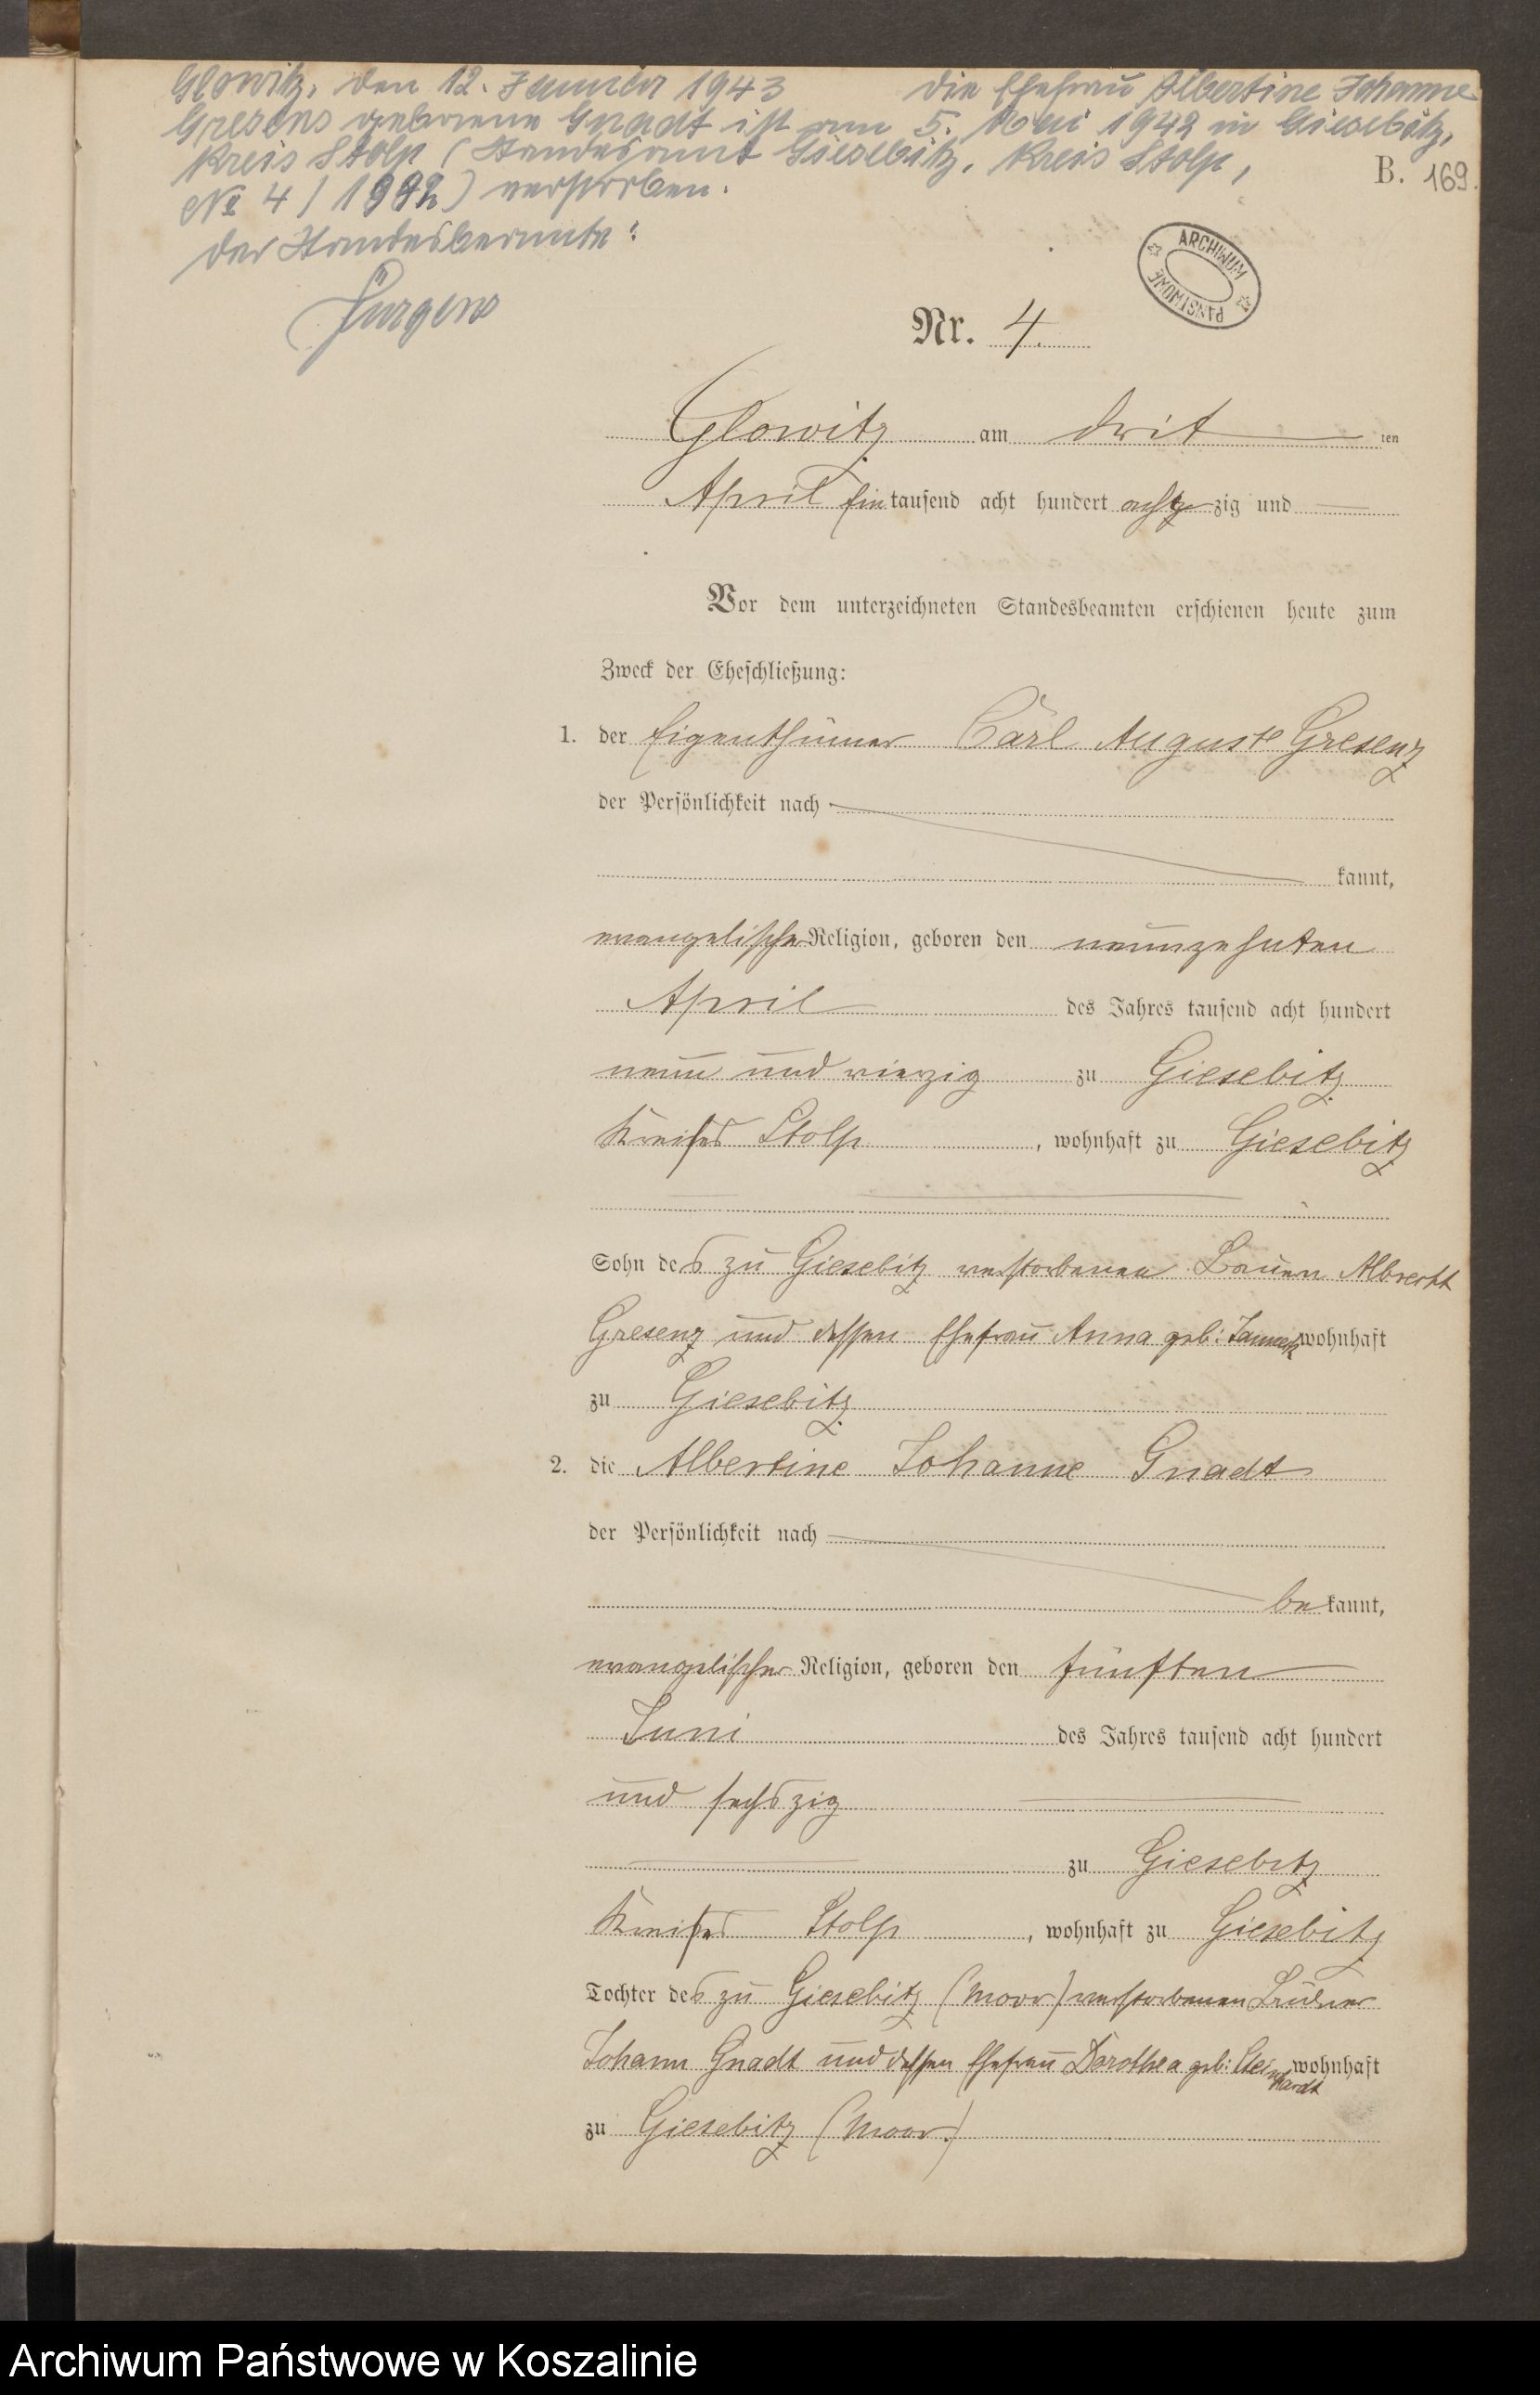 Glowitz, den 12. Januar 1943 Die Ehefrau Albertine Johanne
Gresens geborene Gnadt ist am 5. Mai 1942 in Giesebitz,
Kreis Stolp (Standesamt Giesebitz, Kreis Stolp,
No 4/1942) verstorben.
Der Standesbeamte:
Jürgens
B. 169.
ARCHIWUM PAŃSTWOWE
Nr. 4.
Glowitz am drit ten
April Ein tausend acht hundert acht zig und
Vor dem unterzeichneten Standesbeamten erschienen heute zum
Zweck der Eheschließung:
1. der Eigenthümer Carl August Gresenz
der Persönlichkeit nach
kannt,
evangelischer Religion, geboren den neunzehnten
April des Jahres tausend acht hundert
neun und vierzig zu Giesebitz
Kreises Stolp, wohnhaft zu Giesebitz
Sohn des zu Giesebitz verstorbenen Bauern Albrecht
Gresenz und dessen Ehefrau Anna geb: wohnhaft
zu Giesebitz
2. die Albertine Johanne Gnadt
der Persönlichkeit nach
be kannt,
evangelischer Religion, geboren den fünften
Juni des Jahres tausend acht hundert
und sechszig
zu Giesebitz
Kreises Stolp, wohnhaft zu Giesebitz
Tochter des zu Giesebitz (Moor) verstorbenen Büdner
Johann Gnadt und dessen Ehefrau Dorothea geb: Steinhardt wohnhaft
zu Giesebitz (Moor.)
Archiwum Państwowe w Koszalinie